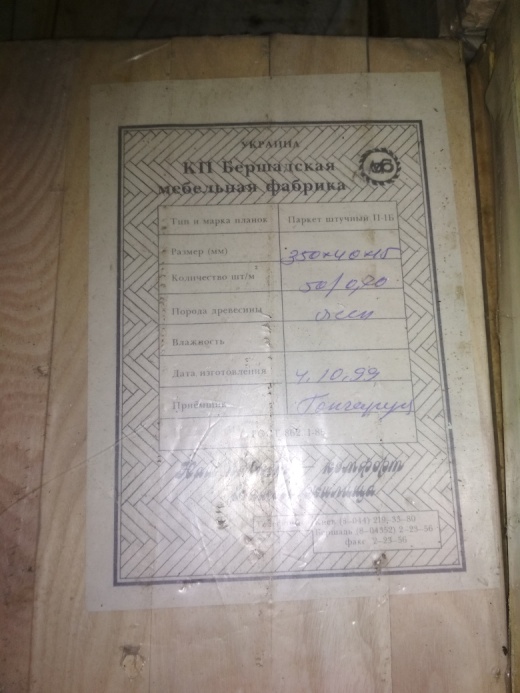 УКРАИНА
КП Бершадская
мебельная фабрика
Тип и марка планок Паркет штучный П-1Б
Размер (мм) 350×40×15
Количество шт/м 50/0,70
Порода древесины ясен
Влажность
Дата изготовления 4.10.99
Приёмщик
комфорт
Киев (8-044) 219-33-80
Бершадь (8-04352) 2-23-56
факс 2-23-56